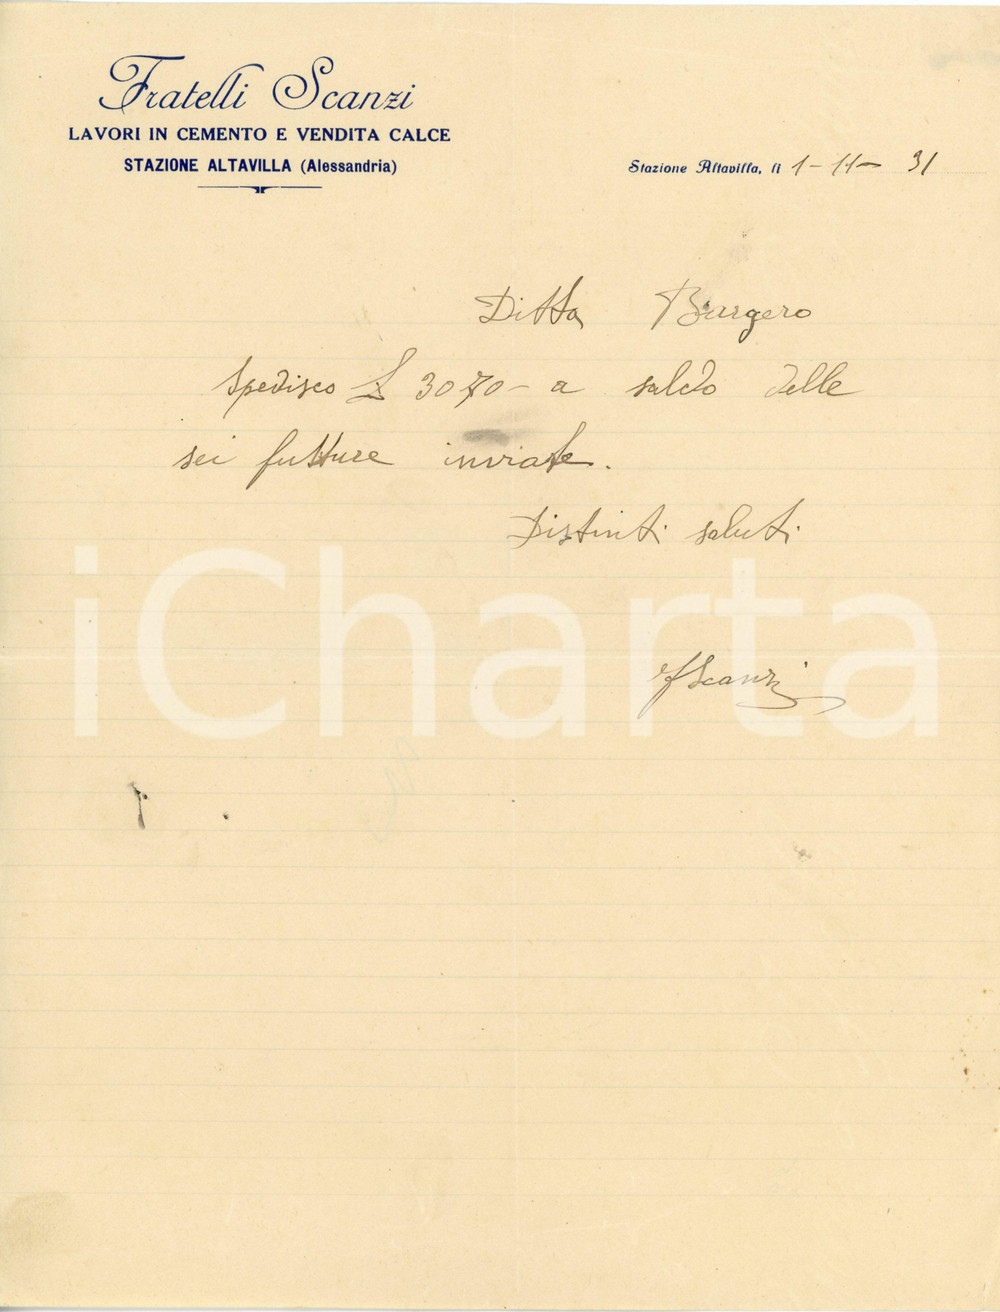 Fratelli Scanzi
LAVORI IN CEMENTO E VENDITA CALCE
STAZIONE ALTAVILLA (Alessandria)
Stazione Altavilla, li 1-11-31
Ditta Bargero
spedisco £ 3070 - a saldo delle
sei futture inviate.
Distinti saluti
f Scanzi
iCharta